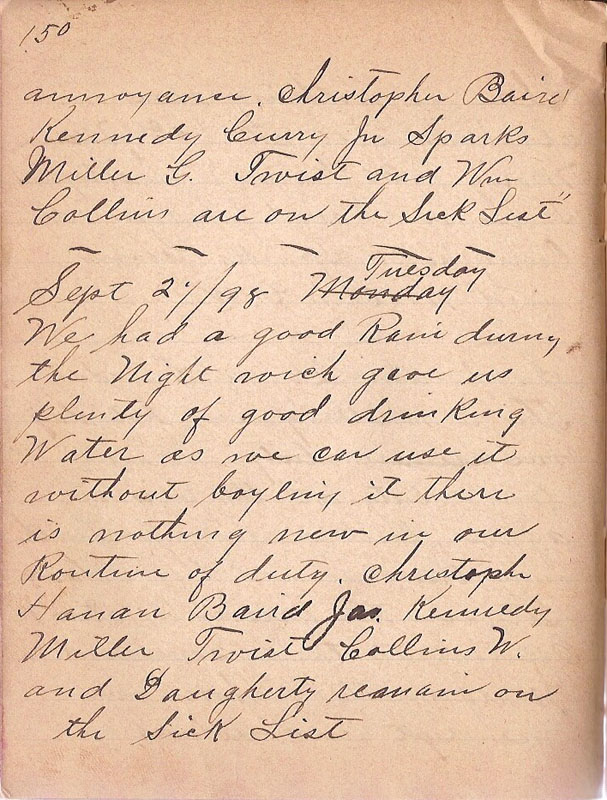 150
annoyance. Christopher Baird
Kennedy Curry Jn Sparks
Miller G. Twist and Wm
Collins are on the Sick List"
Tuesday
Sept 27/98 Monday
We had a good Rain during
the Night wich gave us
plenty of good drinking
Water as we can use it
without boyling it there
is nothing new in our
Routine of duty. Christoph
Hanan Baird Jas. Kennedy
Miller Twist Collins W.
and Daugherty remain on
the Sick List